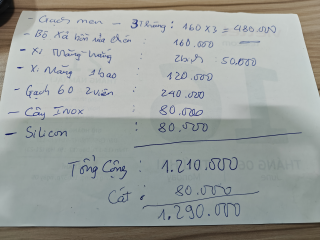 - Gạch men - 3 thùng : 160 x 3 = 480.000
- Bộ xả bồn rửa chén : 160.000
- Xi măng trắng : 2 bịch : 50.000
- Xi măng 1 bao : 120.000
- Gạch 60 2 viên : 240.000
- Cây Inox : 80.000
- Silicon : 80.000
Tổng Cộng : 1.210.000
Cát : 80.000
1.290.000